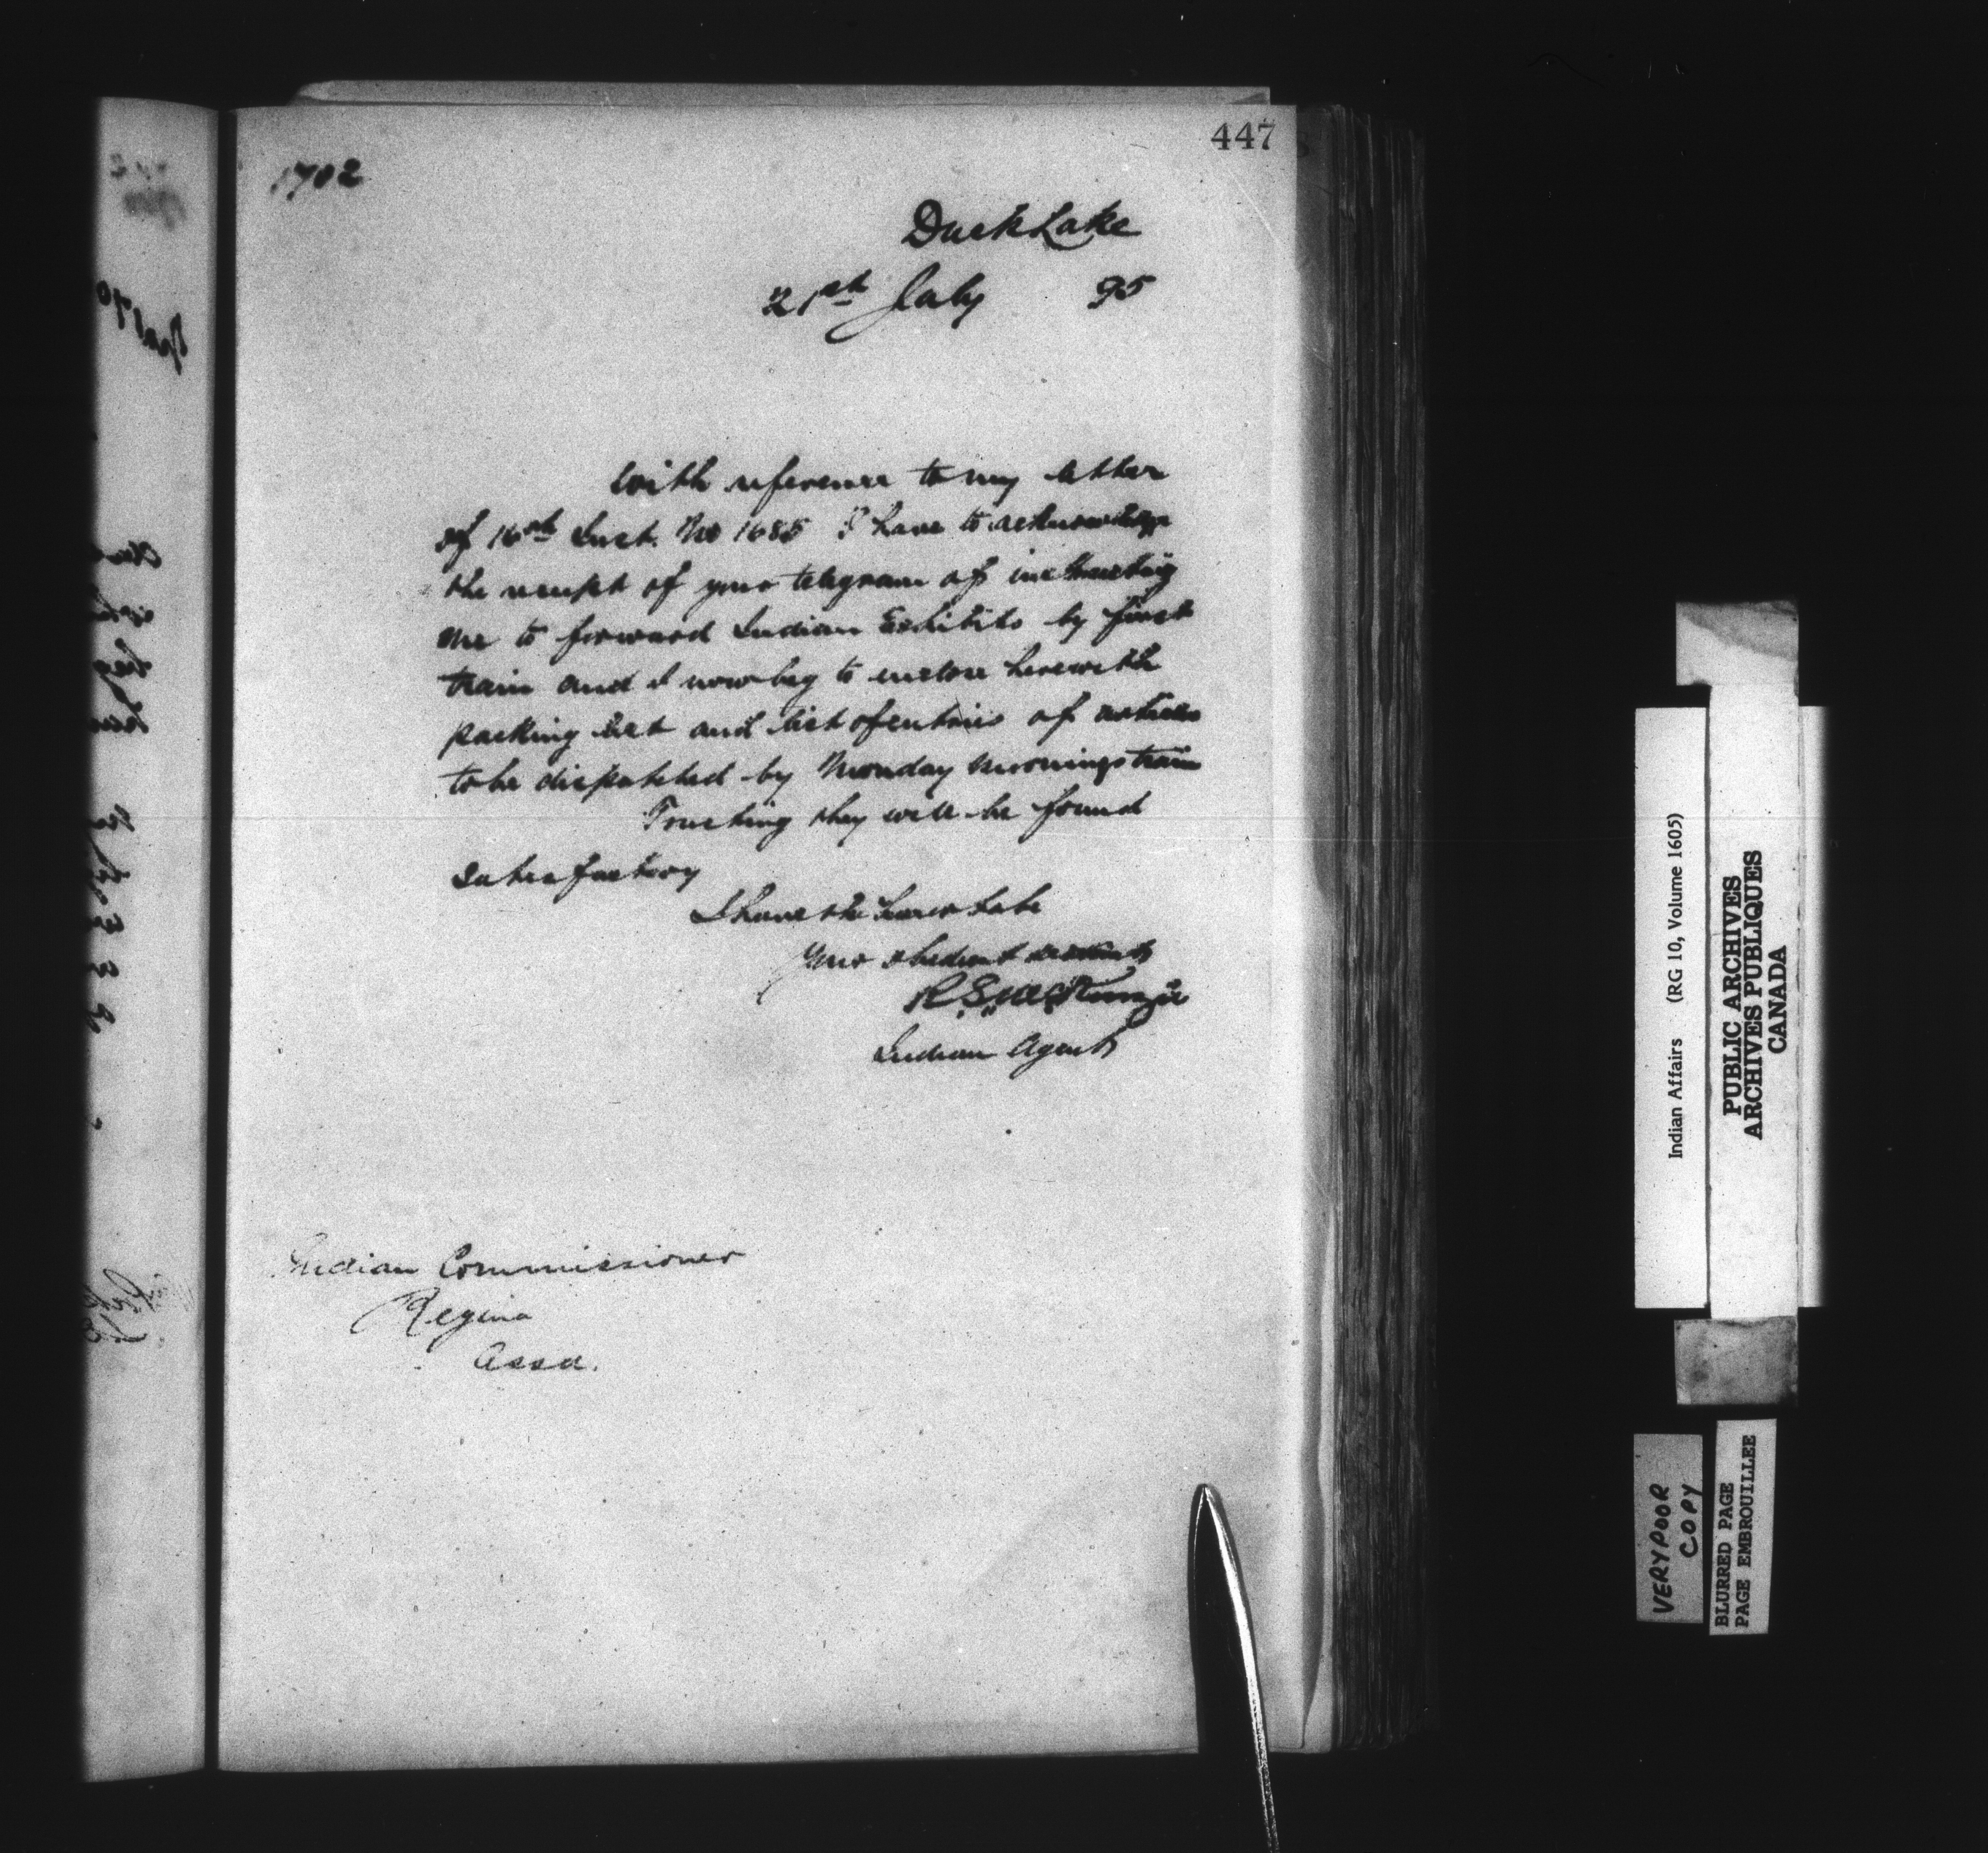 447
1702
Duck Lake
21st July 95
With reference to my letter
of 16th Inst. No 1685 I have to acknowledge
the receipt of your telegram of instructing
me to forward Indian Exhibits by first
train and I now beg to enclose herewith
packing list and list of entries of articles
to be dispatched by Monday mornings train
Trusting they will be found
satisfactory
I have the honor to be
Your obedient servant
R.S. McKenzie
Indian Agent
Indian Commissioner
Regina
Assa.
Indian Affairs (RG 10, Volume 1605)
PUBLIC ARCHIVES
ARCHIVES PUBLIQUES
CANADA
VERY POOR
COPY
BLURRED PAGE
PAGE EMBROUILLEE